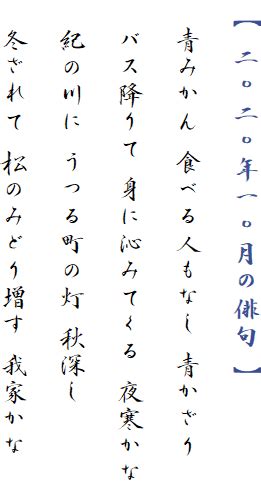 【二〇二〇年一〇月の俳句】
青みかん 食べる人もなし 青かざり
バス降りて 身に沁みてくる 夜寒かな
紀の川に うつる町の灯 秋深し
冬ざれて 松のみどり増す 我家かな